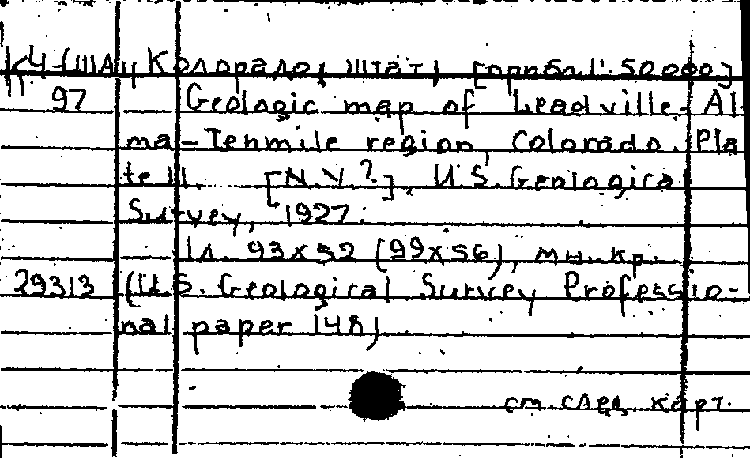 К4-(США, Колорадо, штат) [прибл. 1:50 000]
11
97 Geologic map of Leadville-Al-
ma-Tenmile region, Colorado. Pla
te 11. [N.Y.?], U.S. Geological
Survey, 1927.
1л. 93x52 (99x56), мн. кр.
29313 (U.S. Geological Survey Professio-
nal paper 148)
см. след. карт.